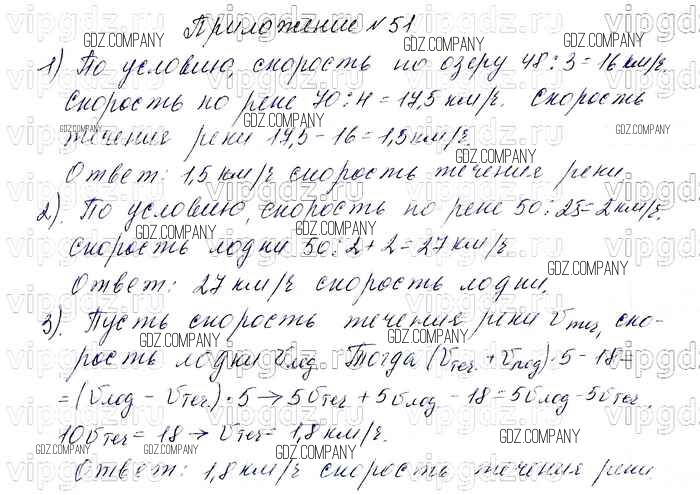 Приложение №51
1) По условию, скорость по озеру 48:3=16 км/ч.
Скорость по реке 70:4=17,5 км/ч. Скорость
течения реки 17,5-16=1,5 км/ч.
Ответ: 1,5 км/ч скорость течения реки.
2). По условию, скорость по реке 50:25=2 км/ч.
Скорость лодки 50:2+2=27 км/ч
Ответ: 27 км/ч скорость лодки.
3). Пусть скорость течения реки Vтеч, ско-
рость лодки Vлод. Тогда (Vтеч + Vлод)·5-18=
=(Vлод - Vтеч)·5 → 5Vтеч + 5Vлод - 18 = 5Vлод - 5Vтеч.
10Vтеч = 18 → Vтеч = 1,8 км/ч.
Ответ: 1,8 км/ч скорость течения реки